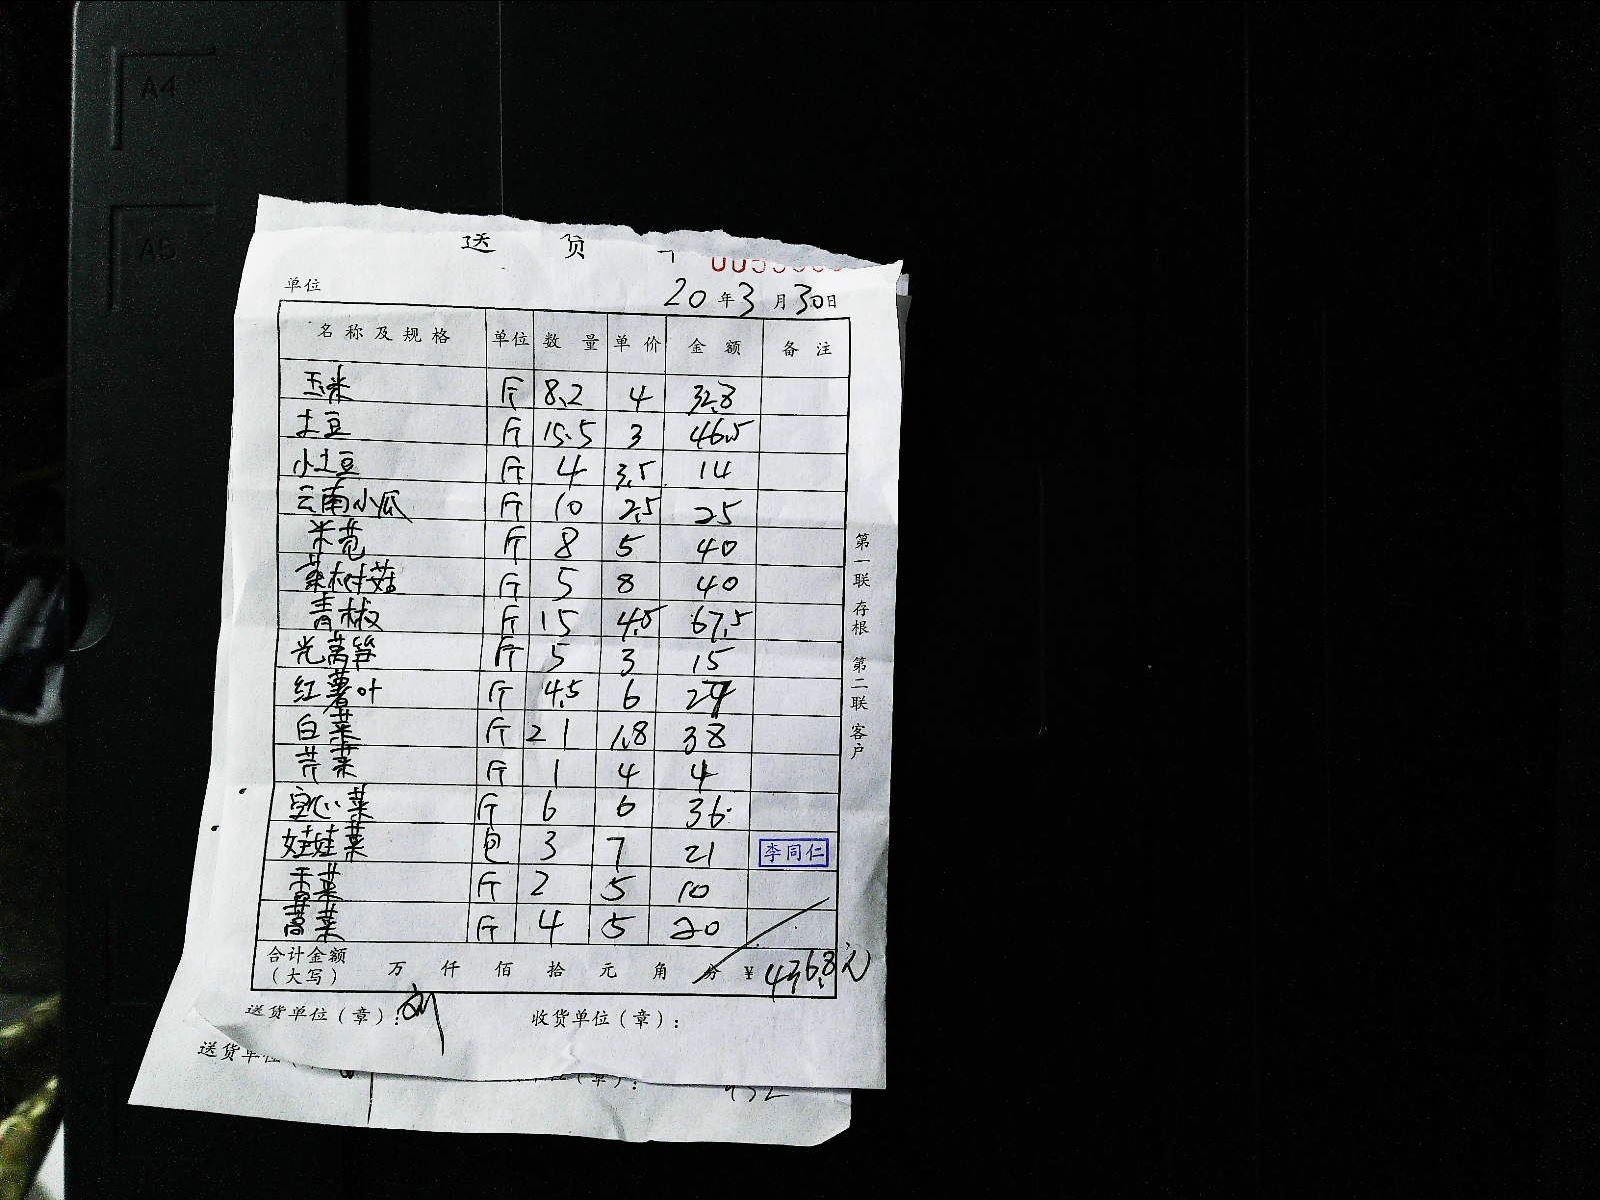 A4
A5
送 货
单位 20年3月30日
名称及规格 单位 数量 单价 金额 备注
玉米 斤 8.2 4 32.8
土豆 斤 15.5 3 46.5
小土豆 斤 4 3.5 14
云南小瓜 斤 10 2.5 25
米苋 斤 8 5 40
茶树菇 斤 5 8 40
青椒 斤 15 4.5 67.5
光莴笋 斤 5 3 15
红薯叶 斤 4.5 6 27
白菜 斤 21 1.8 38
芹菜 斤 1 4 4
空心菜 斤 6 6 36
娃娃菜 包 3 7 21 李同仁
香菜 斤 2 5 10
蒿菜 斤 4 5 20
合计金额（大写） 万 仟 佰 拾 元 角 分 ¥436.8元
送货单位（章）：刘 收货单位（章）：
第一联 存根 第二联 客户
送货单位
（章）：